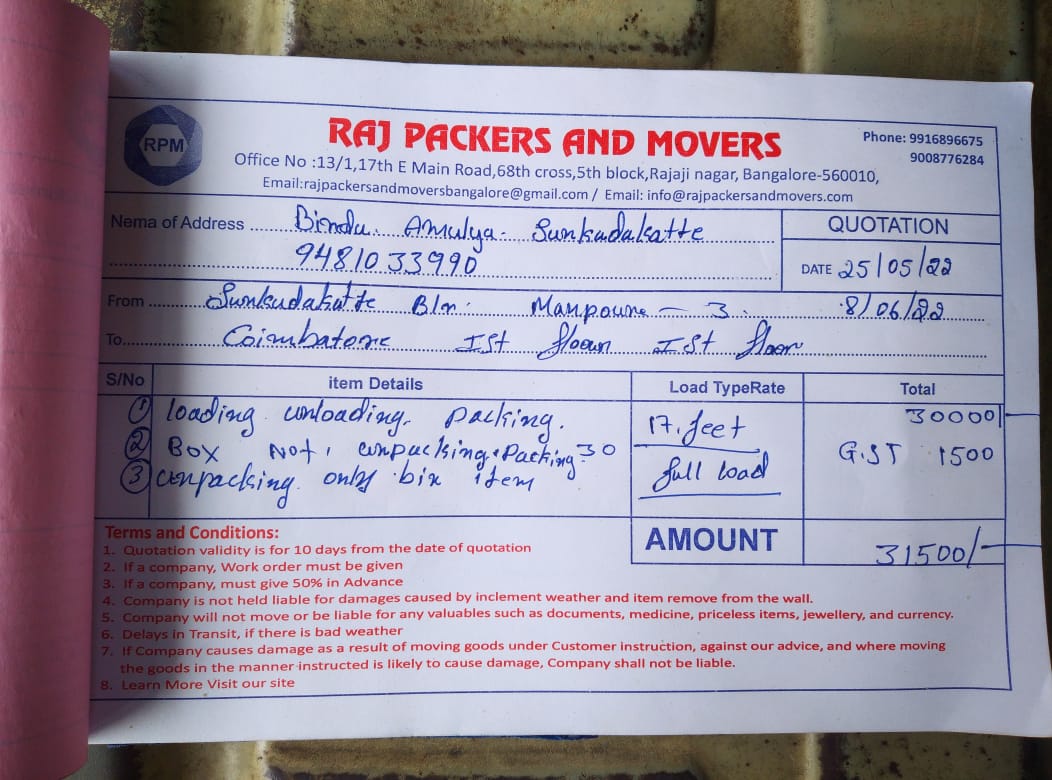 RPM
RAJ PACKERS AND MOVERS
Phone: 9916896675
9008776284
Office No :13/1,17th E Main Road,68th cross,5th block,Rajaji nagar, Bangalore-560010,
Email:rajpackersandmoversbangalore@gmail.com / Email: info@rajpackersandmovers.com
Nema of Address Bindu. Amulya. Sunkadakatte
9481033990
QUOTATION
DATE 25/05/22
From Sunkudakatte Bln: Manpoune - 3. 8/06/22
To Coimbatore Ist floour Ist floor
S/No item Details Load TypeRate Total
① loading unloading. packing. 17. feet 30000/-
② Box Not, unpacking. Packing 30 full load G.ST 1500
③ unpacking. only bix item
AMOUNT 31500/-
Terms and Conditions:
1. Quotation validity is for 10 days from the date of quotation
2. If a company, Work order must be given
3. If a company, must give 50% in Advance
4. Company is not held liable for damages caused by inclement weather and item remove from the wall.
5. Company will not move or be liable for any valuables such as documents, medicine, priceless items, jewellery, and currency.
6. Delays in Transit, if there is bad weather
7. If Company causes damage as a result of moving goods under Customer instruction, against our advice, and where moving
the goods in the manner instructed is likely to cause damage, Company shall not be liable.
8. Learn More Visit our site